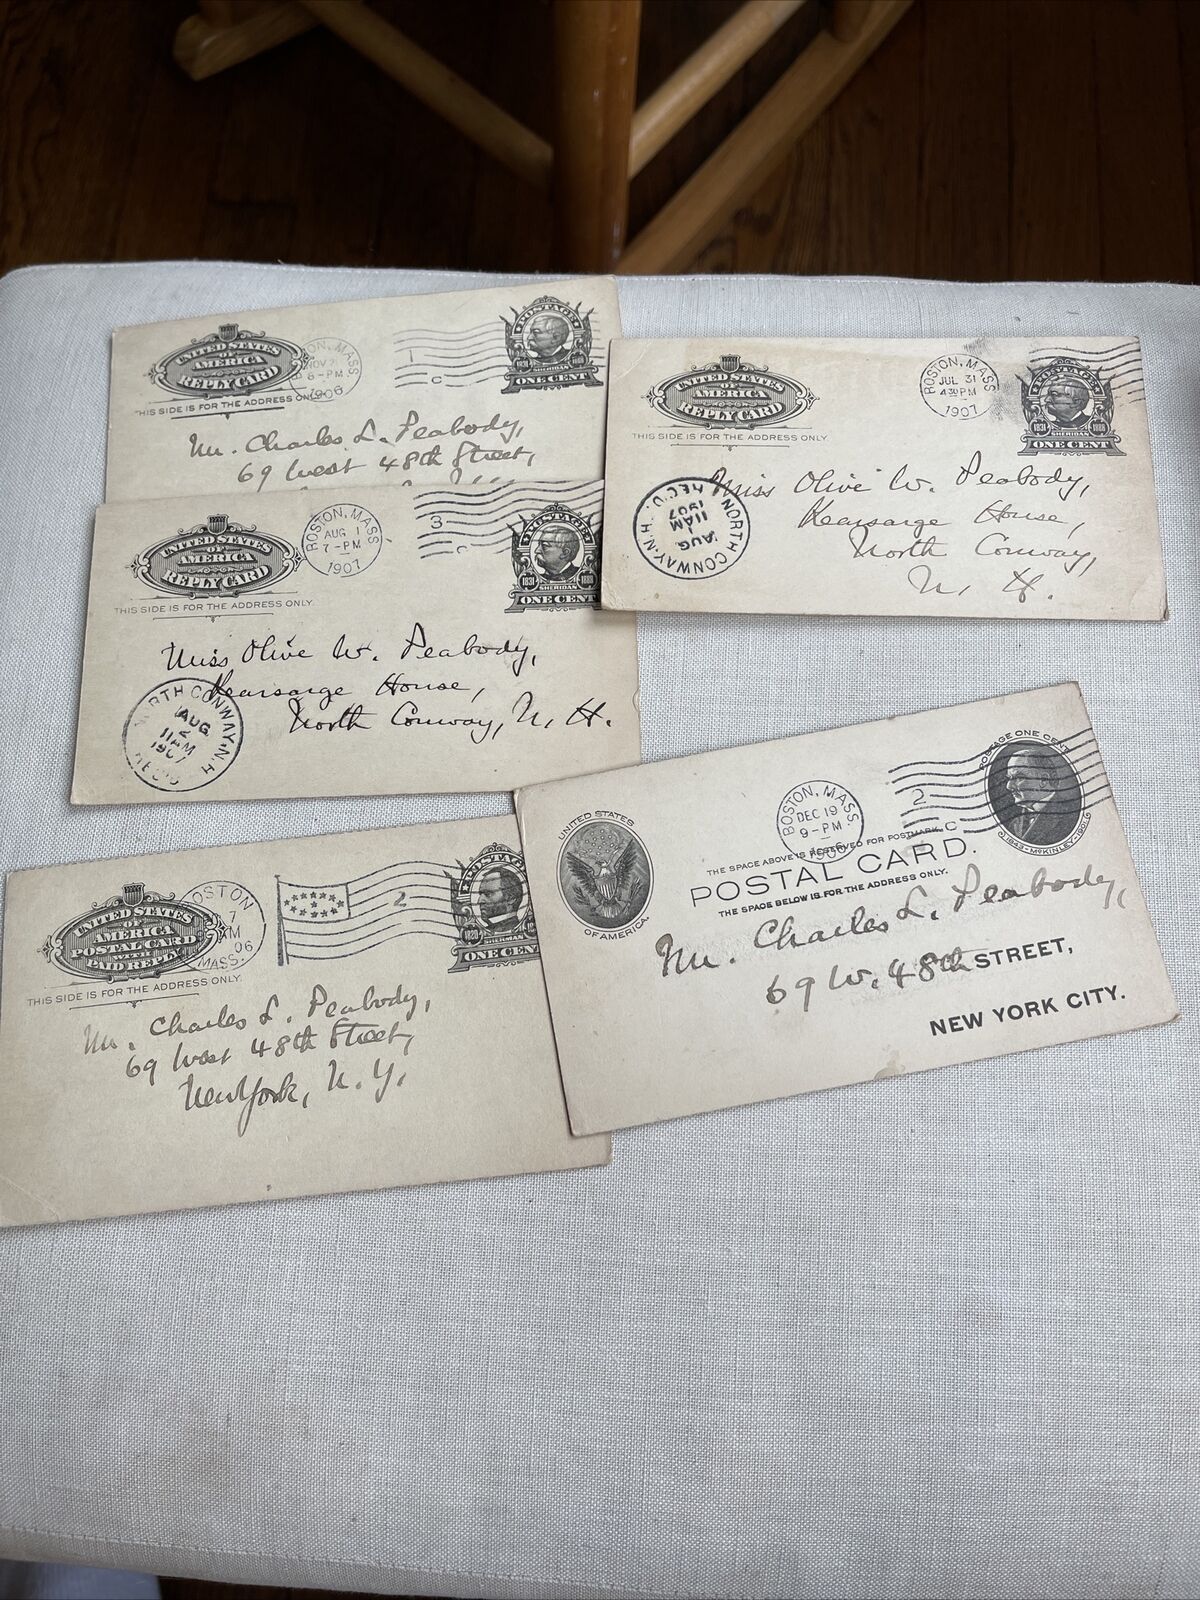 UNITED STATES
OF
AMERICA
REPLY CARD
THIS SIDE IS FOR THE ADDRESS ONLY.
BOSTON, MASS
NOV
8-PM
1906
1
C
POSTAGE
ONE CENT
Mr. Charles L. Peabody,
69 West 48th Street,
UNITED STATES
OF
AMERICA
REPLY CARD
THIS SIDE IS FOR THE ADDRESS ONLY.
BOSTON, MASS
JUL 31
4 30 PM
1907
POSTAGE
1831 1888
SHERIDAN
ONE CENT
Miss Olive W. Peabody,
Kearsarge House,
North Conway,
N. H.
NORTH CONWAY, N.H.
AUG
1
11AM
1907
REC'D.
UNITED STATES
OF
AMERICA
REPLY CARD
THIS SIDE IS FOR THE ADDRESS ONLY.
BOSTON, MASS
AUG 1
7-PM
1907
3
C
POSTAGE
1831 1888
SHERIDAN
ONE CENT
Miss Olive W. Peabody,
Kearsarge House,
North Conway, N. H.
NORTH CONWAY, N.H.
AUG
2
11AM
1907
REC'D
UNITED STATES
OF AMERICA.
BOSTON, MASS.
DEC 19
9-PM
2
C
POSTAGE ONE CENT
1843-McKINLEY-1901
THE SPACE ABOVE IS RESERVED FOR POSTMARK.
POSTAL CARD.
THE SPACE BELOW IS FOR THE ADDRESS ONLY.
Mr. Charles L. Peabody,
69 W. 48th STREET,
NEW YORK CITY.
UNITED STATES
OF
AMERICA
POSTAL CARD
WITH
PAID REPLY
THIS SIDE IS FOR THE ADDRESS ONLY.
BOSTON
7
AM
06
MASS.
2
POSTAGE
1820
SHERMAN
ONE CENT
Mr. Charles L. Peabody,
69 West 48th Street,
New York, N. Y.